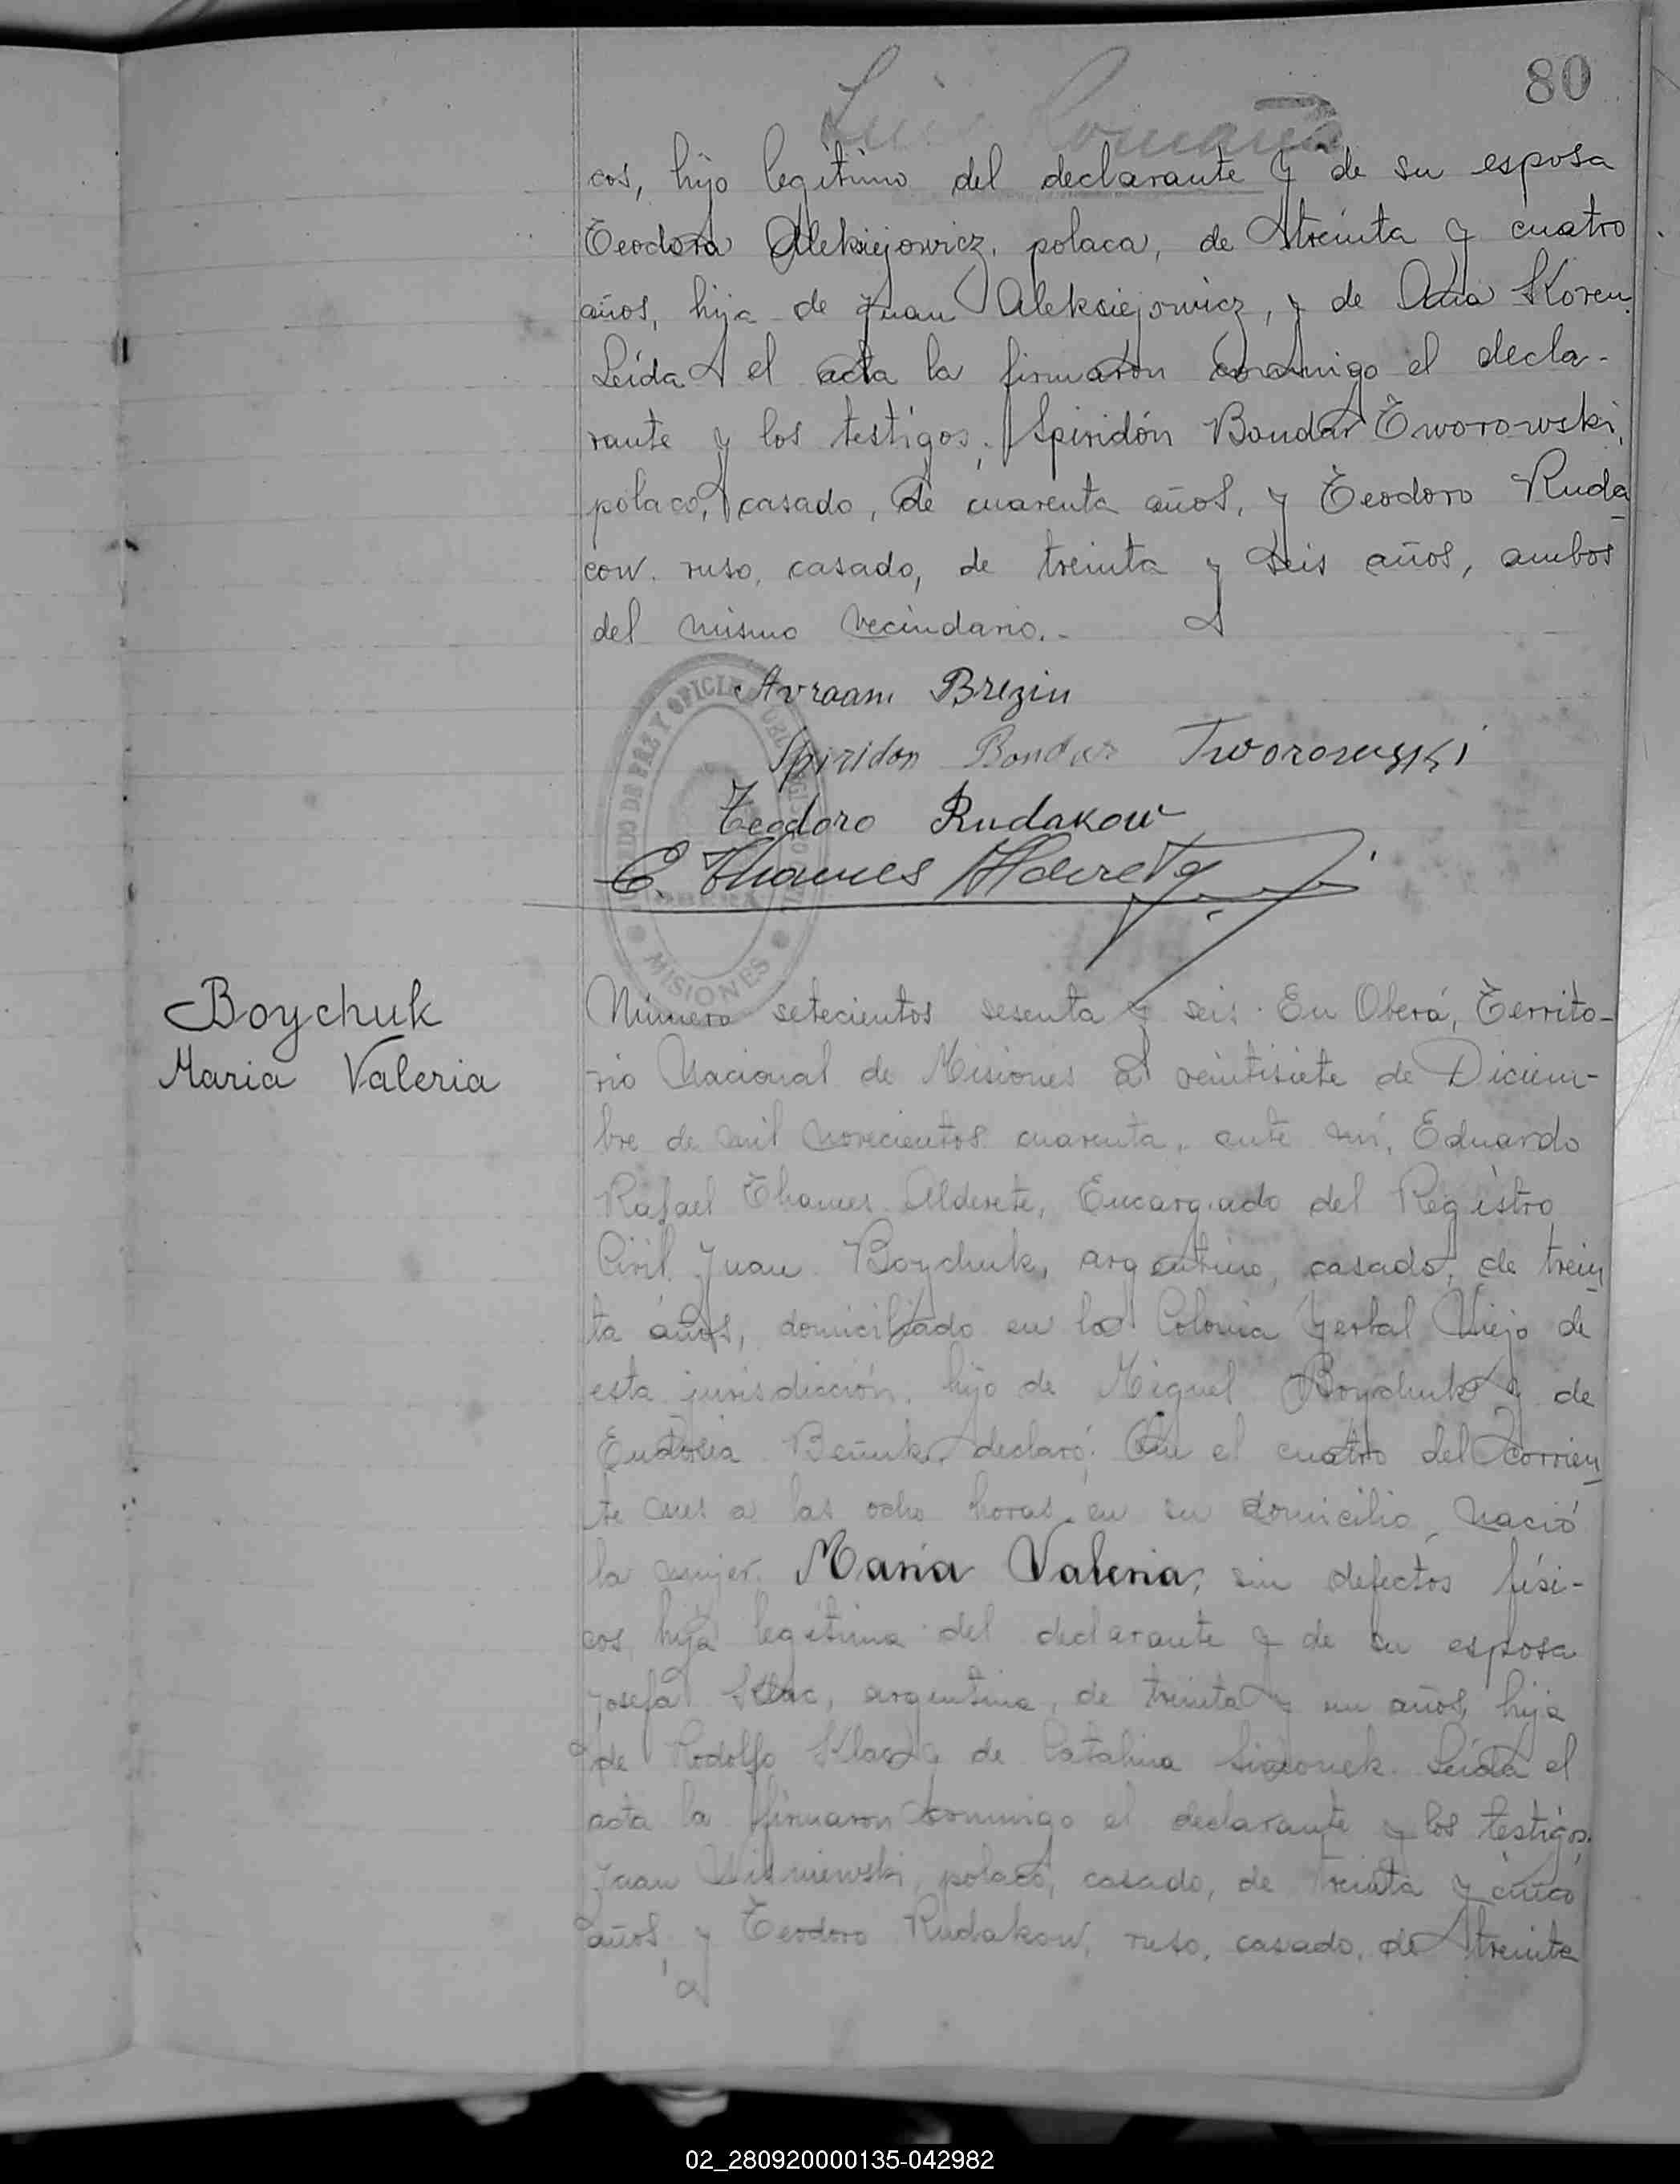 80
Luis Romano
cos, hijo legítimo del declarante y de su esposa
Teodora Aleksiejowicz, polaca, de treinta y cuatro
años, hija de Juan Aleksiejowicz, y de Ana Koren.
Leída el acta la firmaron conmigo el decla-
rante y los testigos, Spiridón Bondar Tworowski,
polaco, casado, de cuarenta años, y Teodoro Ruda
cow. ruso, casado, de treinta y seis años, ambos
del mismo vecindario.-
Avraam Brezin
Spiridon Bondar Tworowski
Teodoro Rudakow
E. Thames Alderete
MISIONES
Boychuk
Maria Valeria
Número setecientos sesenta y seis. En Oberá, Territo-
rio Nacional de Misiones a veintisiete de Diciem-
bre de mil novecientos cuarenta, ante mí, Eduardo
Rafael Thames Alderete, Encargado del Registro
Civil, Juan Boychuk, argentino, casado, de trein
ta años, domiciliado en la Colonia Yerbal Viejo de
esta jurisdicción, hijo de Miguel Boychuk y de
declaró: Que el cuatro del corrien
te mes a las ocho horas, en su domicilio, nació
la mujer María Valeria, sin defectos físi-
cos, hija legítima del declarante y de su esposa
Josefa Klac, argentina, de treinta y un años, hija
de Rodolfo Klac y de Catalina Leída el
acta la firmaron conmigo el declarante y los testigos,
Juan Wisniewski, polaco, casado, de treinta y cinco
años, y Teodoro Rudakow, ruso, casado, de treinta
02_280920000135-042982